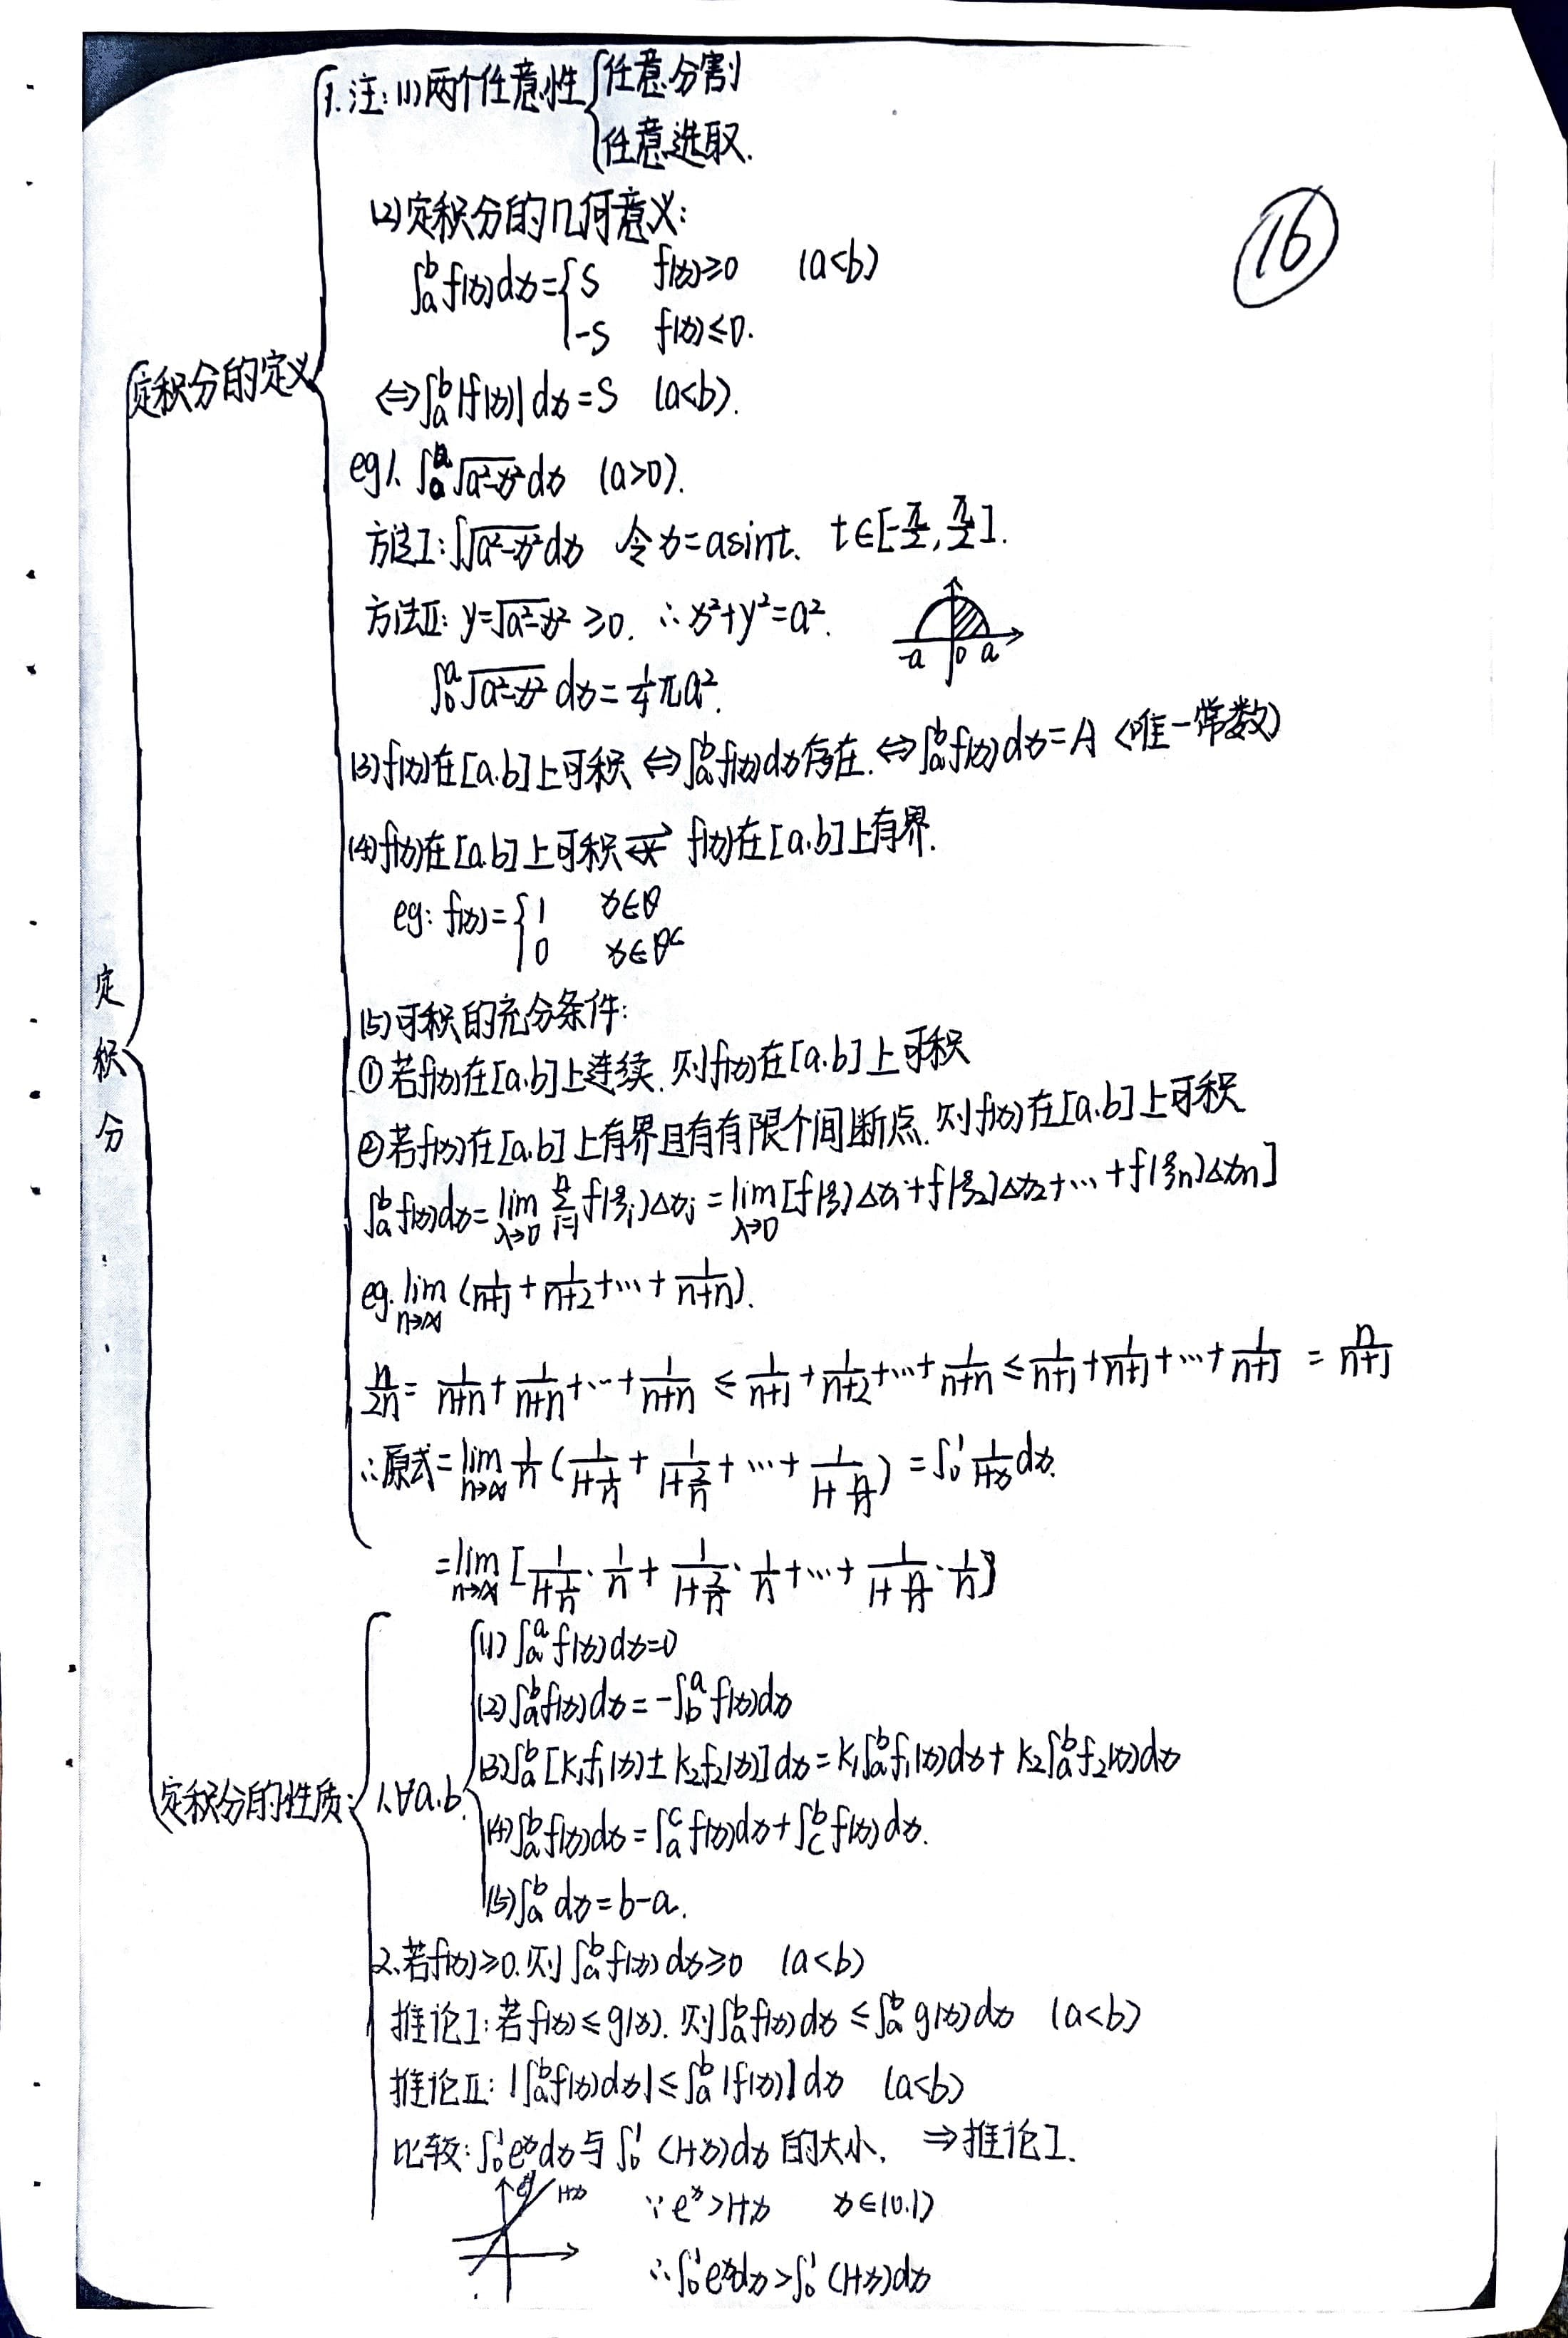 1.注:(1)两个任意性{任意分割
任意选取.
(2)定积分的几何意义:
∫ₐᵇf(x)dx={S f(x)≥0 (a<b)
-S f(x)≤0.
⇔∫ₐᵇ|f(x)|dx=S (a<b).
16
定积分的定义
eg1. √(a²-x²)dx (a>0).
方法I:∫√(a²-x²)dx 令x=asint. t∈[-π/2,π/2].
方法II:y=√(a²-x²)≥0. ∴x²+y²=a².
-a 0 a
∫₀ᵃ√(a²-x²)dx=1/4πa².
(3)f(x)在[a.b]上可积⇔∫ₐᵇf(x)dx存在.⇔∫ₐᵇf(x)dx=A(唯一常数)
(4)f(x)在[a.b]上可积⇄ f(x)在[a.b]上有界.
eg: f(x)={1 x∈Q
0 x∈Qᶜ
(5)可积的充分条件:
①若f(x)在[a.b]上连续.则f(x)在[a.b]上可积
②若f(x)在[a.b]上有界且有有限个间断点.则f(x)在[a.b]上可积
∫ₐᵇf(x)dx=lim λ→0 Σ i=1 n f(ξᵢ)Δxᵢ=lim λ→0 [f(ξ₁)Δx₁+f(ξ₂)Δx₂+…+f(ξn)Δxn]
eg.lim n→∞ (1/(n+1)+1/(n+2)+…+1/(n+n)).
n/2n=1/(n+n)+1/(n+n)+…+1/(n+n)≤1/(n+1)+1/(n+2)+…+1/(n+n)≤1/(n+1)+1/(n+1)+…+1/(n+1)=n/(n+1)
∴原式=lim n→∞ 1/n(1/(1+1/n)+1/(1+2/n)+…+1/(1+n/n))=∫₀¹1/(1+x)dx.
=lim n→∞ [1/(1+1/n)·1/n+1/(1+2/n)·1/n+…+1/(1+n/n)·1/n]
定积分
定积分的性质:
1.∀a.b.
(1)∫ₐᵃf(x)dx=0
(2)∫ₐᵇf(x)dx=-∫_bᵃf(x)dx
(3)∫ₐᵇ[k₁f₁(x)±k₂f₂(x)]dx=k₁∫ₐᵇf₁(x)dx+k₂∫ₐᵇf₂(x)dx
(4)∫ₐᵇf(x)dx=∫ₐᶜf(x)dx+∫_cᵇf(x)dx.
(5)∫ₐᵇdx=b-a.
2.若f(x)≥0.则∫ₐᵇf(x)dx≥0 (a<b)
推论I:若f(x)≤g(x).则∫ₐᵇf(x)dx≤∫ₐᵇg(x)dx (a<b)
推论II:|∫ₐᵇf(x)dx|≤∫ₐᵇ|f(x)|dx (a<b)
比较:∫₀¹eˣdx与∫₀¹(1+x)dx的大小. ⇒推论I.
eˣ 1+x ∵eˣ>1+x x∈(0.1)
∴∫₀¹eˣdx>∫₀¹(1+x)dx